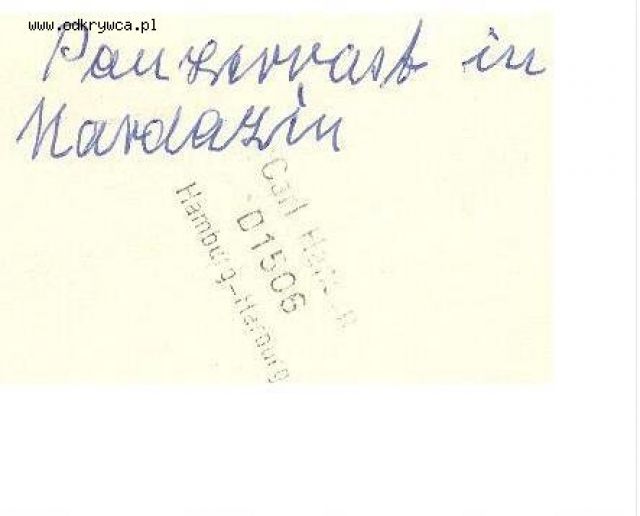 www.odkrywca.pl
Panzerrast in
Mardazin
Carl
01506
Hamburg-Harburg